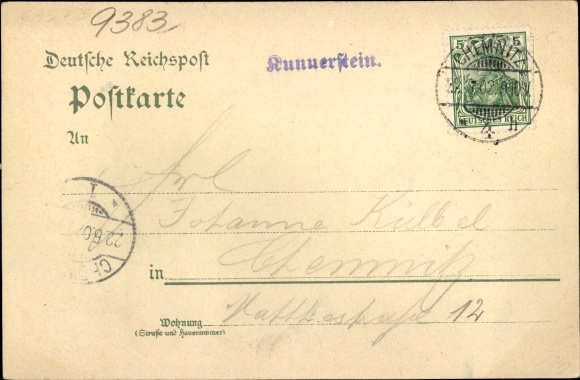 9383
Deutsche Reichspost
Kunnerstein.
Postkarte
An
5 5
CHEMNITZ
DEUTSCHES REICH
4 n
Frl.
Johanne Külbel
in Chemnitz
12
Wohnung
(Straße und Hausnummer)
22.6.02